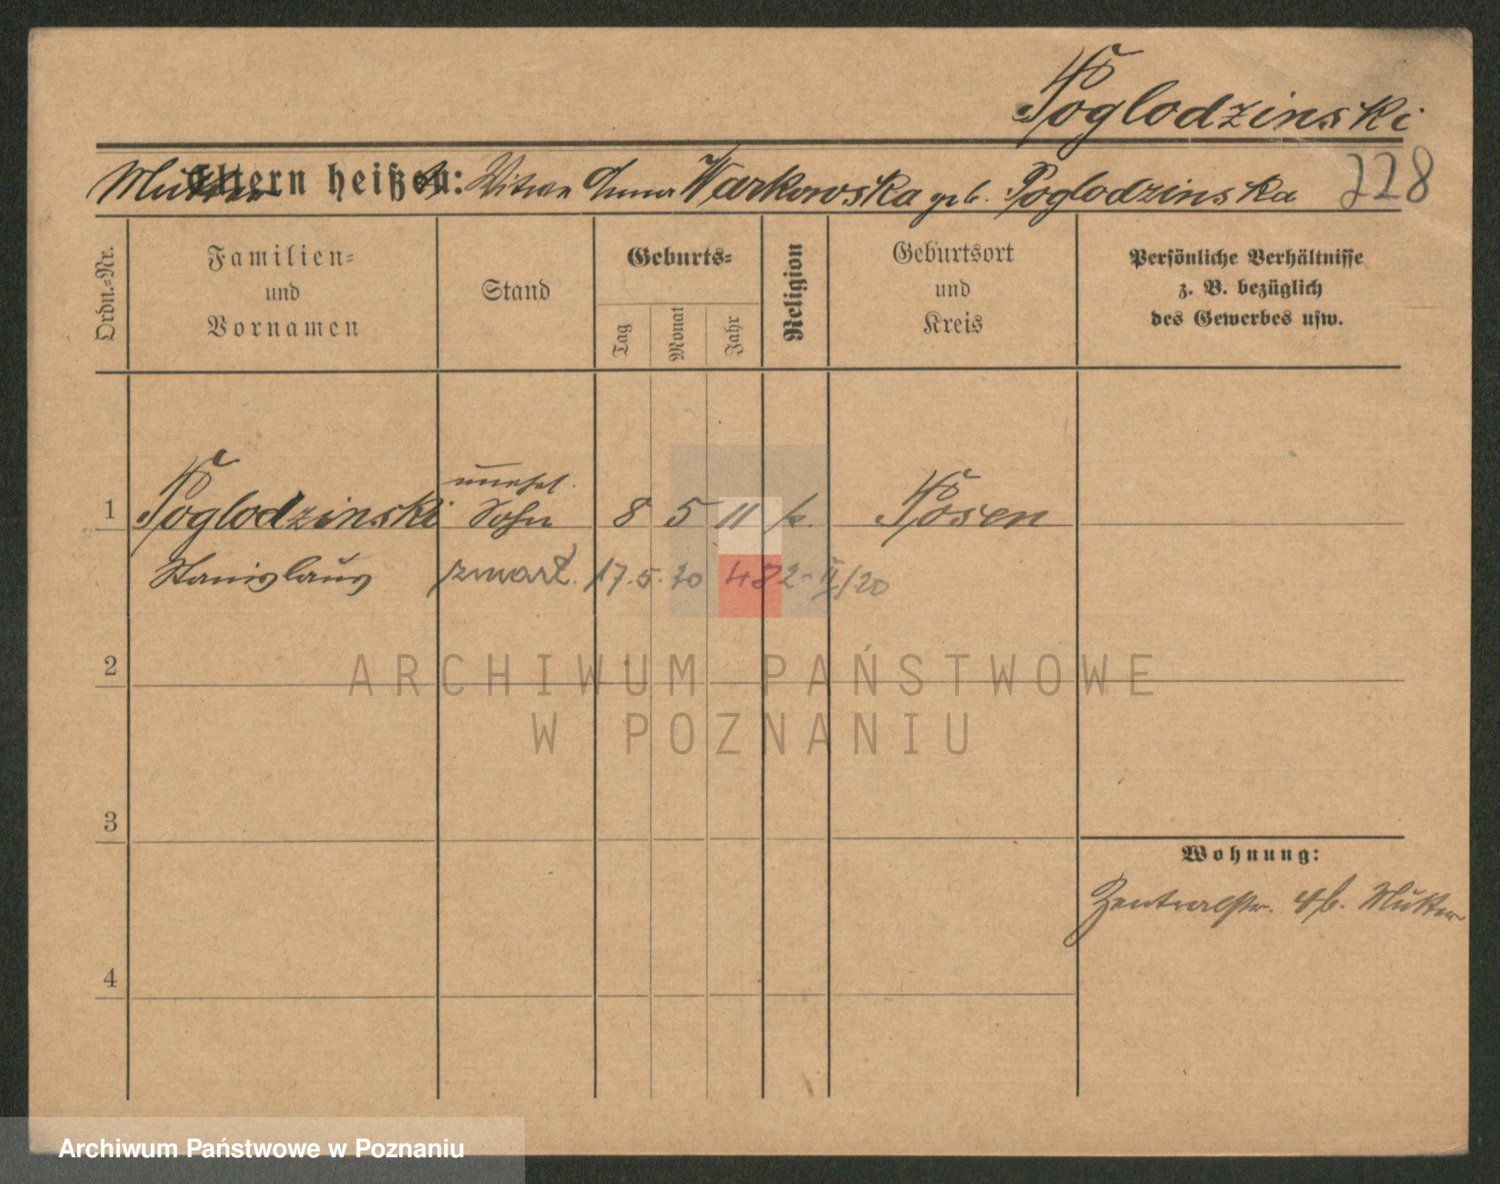 Poglodzinski
Mutter heißt: Witwe Anna Warkowska geb. Poglodzinska
228
Ordn.=Nr.
Familien=
und
Vornamen
Stand
Geburts=
Tag
Monat
Jahr
Religion
Geburtsort
und
Kreis
Persönliche Verhältnisse
z. B. bezüglich
des Gewerbes usw.
1 Poglodzinski unehel. Sohn 8 5 11 k. Posen
Stanislaus zmarł. 17.5.20 482-II/20
2
3
4
Wohnung:
Zentralstr. 4 b. Mutter
ARCHIWUM PAŃSTWOWE
W POZNANIU
Archiwum Państwowe w Poznaniu